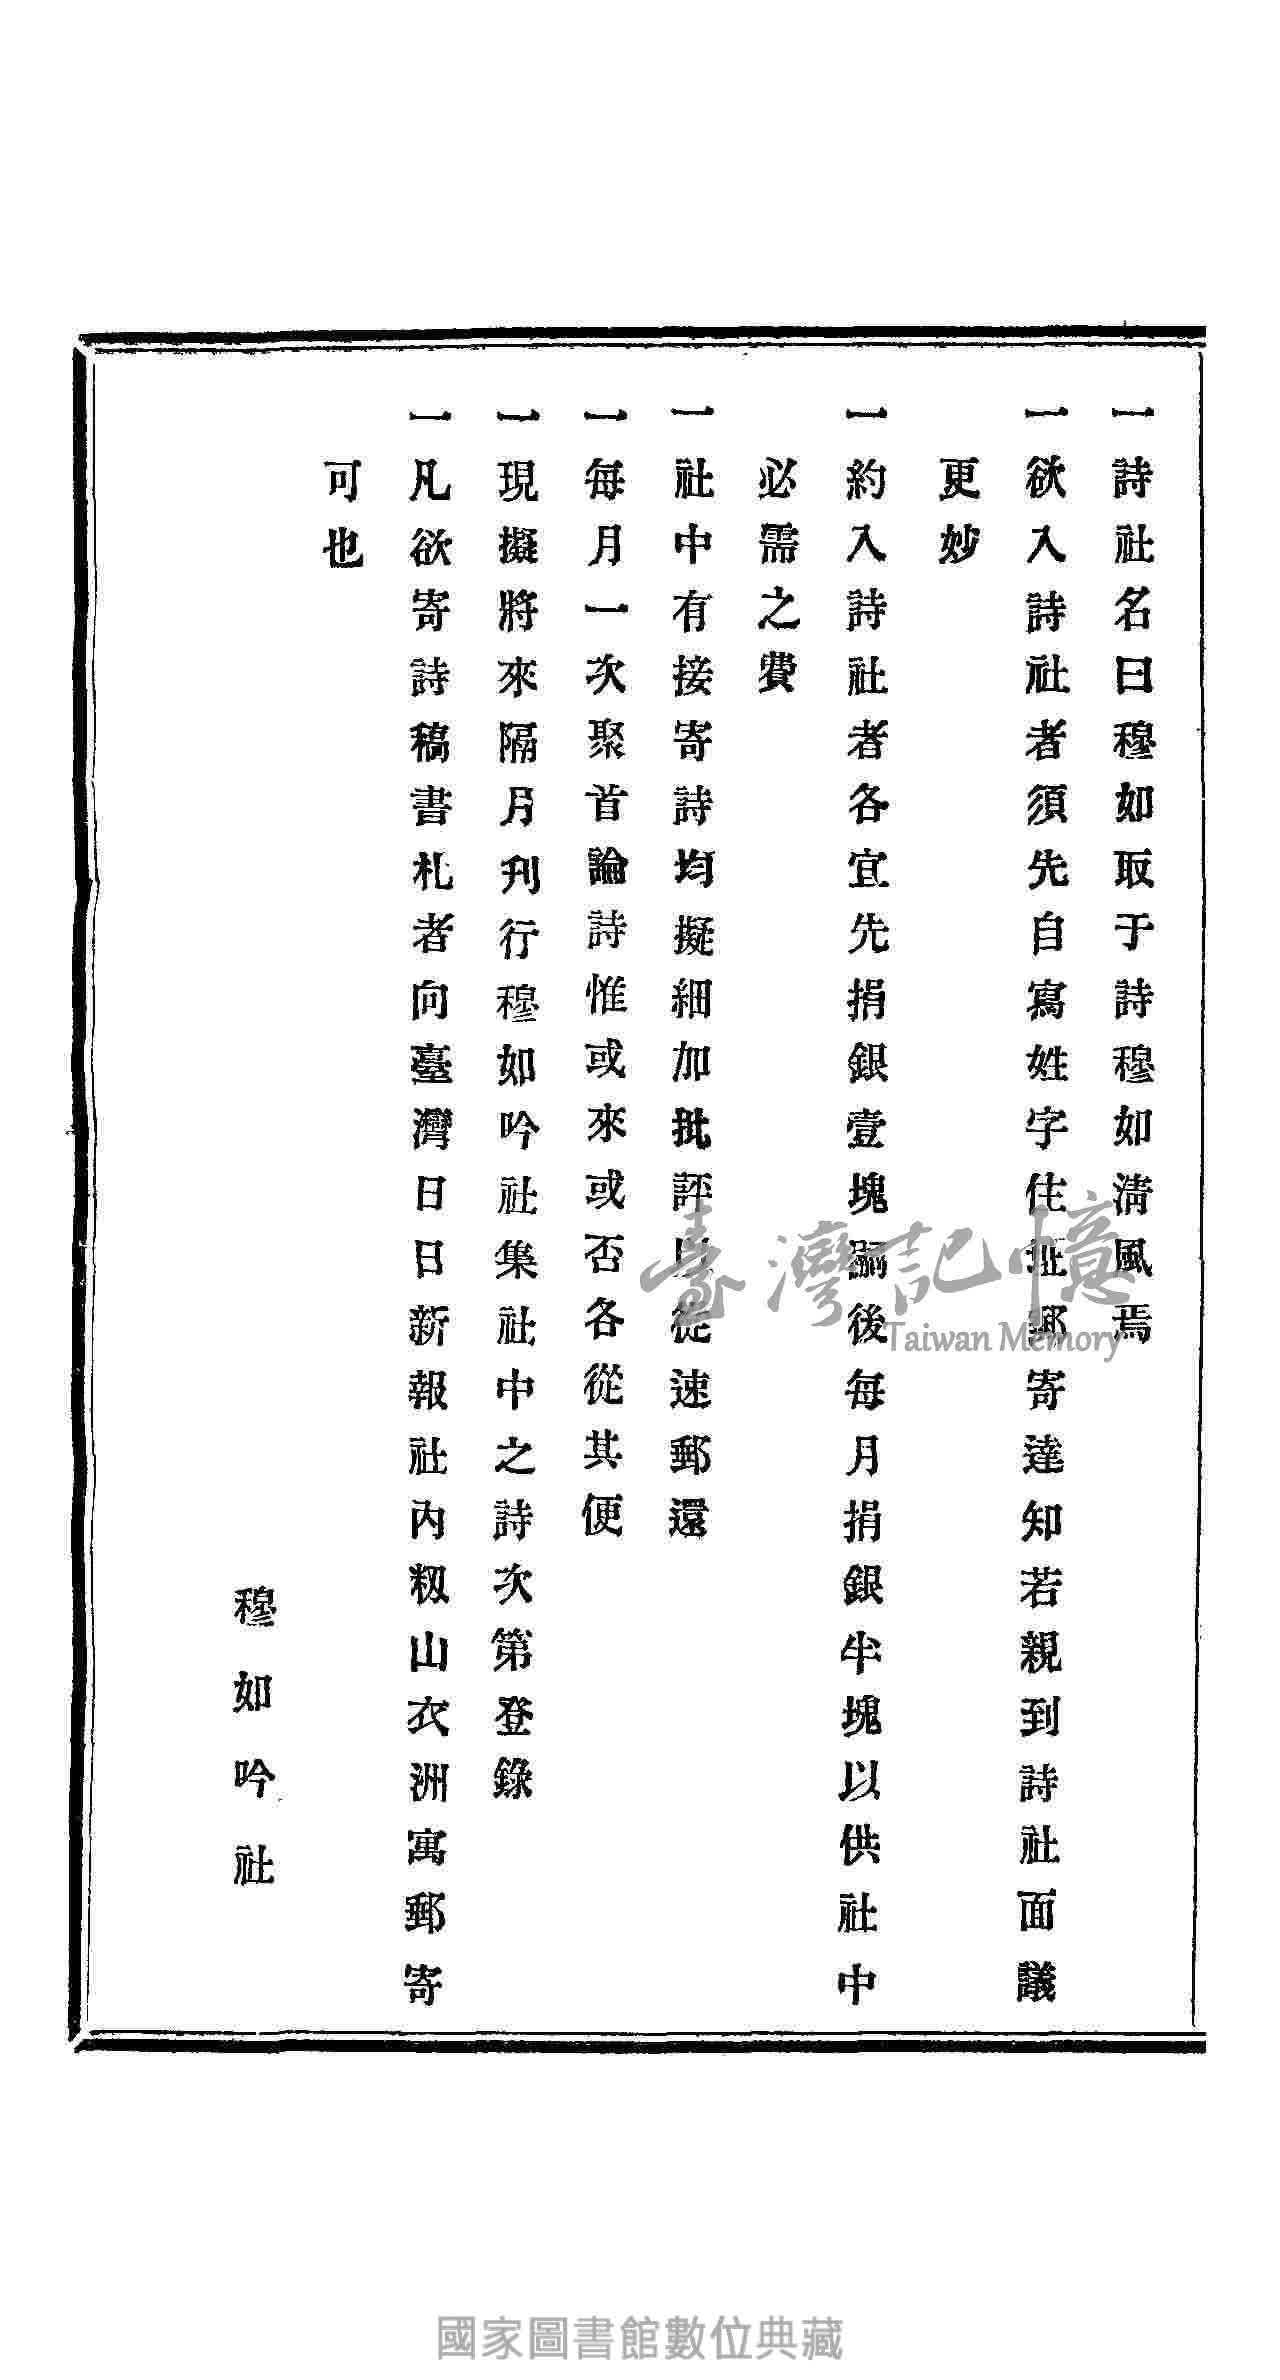 一詩社名曰穆如取于詩穆如淸風焉
一欲入詩社者須先自寫姓字住址郵寄達知若親到詩社面議
更妙
一約入詩社者各宜先捐銀壹塊嗣後每月捐銀半塊以供社中
必需之費
一社中有接寄詩均擬細加批評以從速郵還
一每月一次聚首論詩惟或來或否各從其便
一現擬將來隔月刋行穆如吟社集社中之詩次第登錄
一凡欲寄詩稿書札者向臺灣日日新報社內籾山衣洲寓郵寄
可也
穆如吟社
臺灣記憶
Taiwan Memory
國家圖書館數位典藏